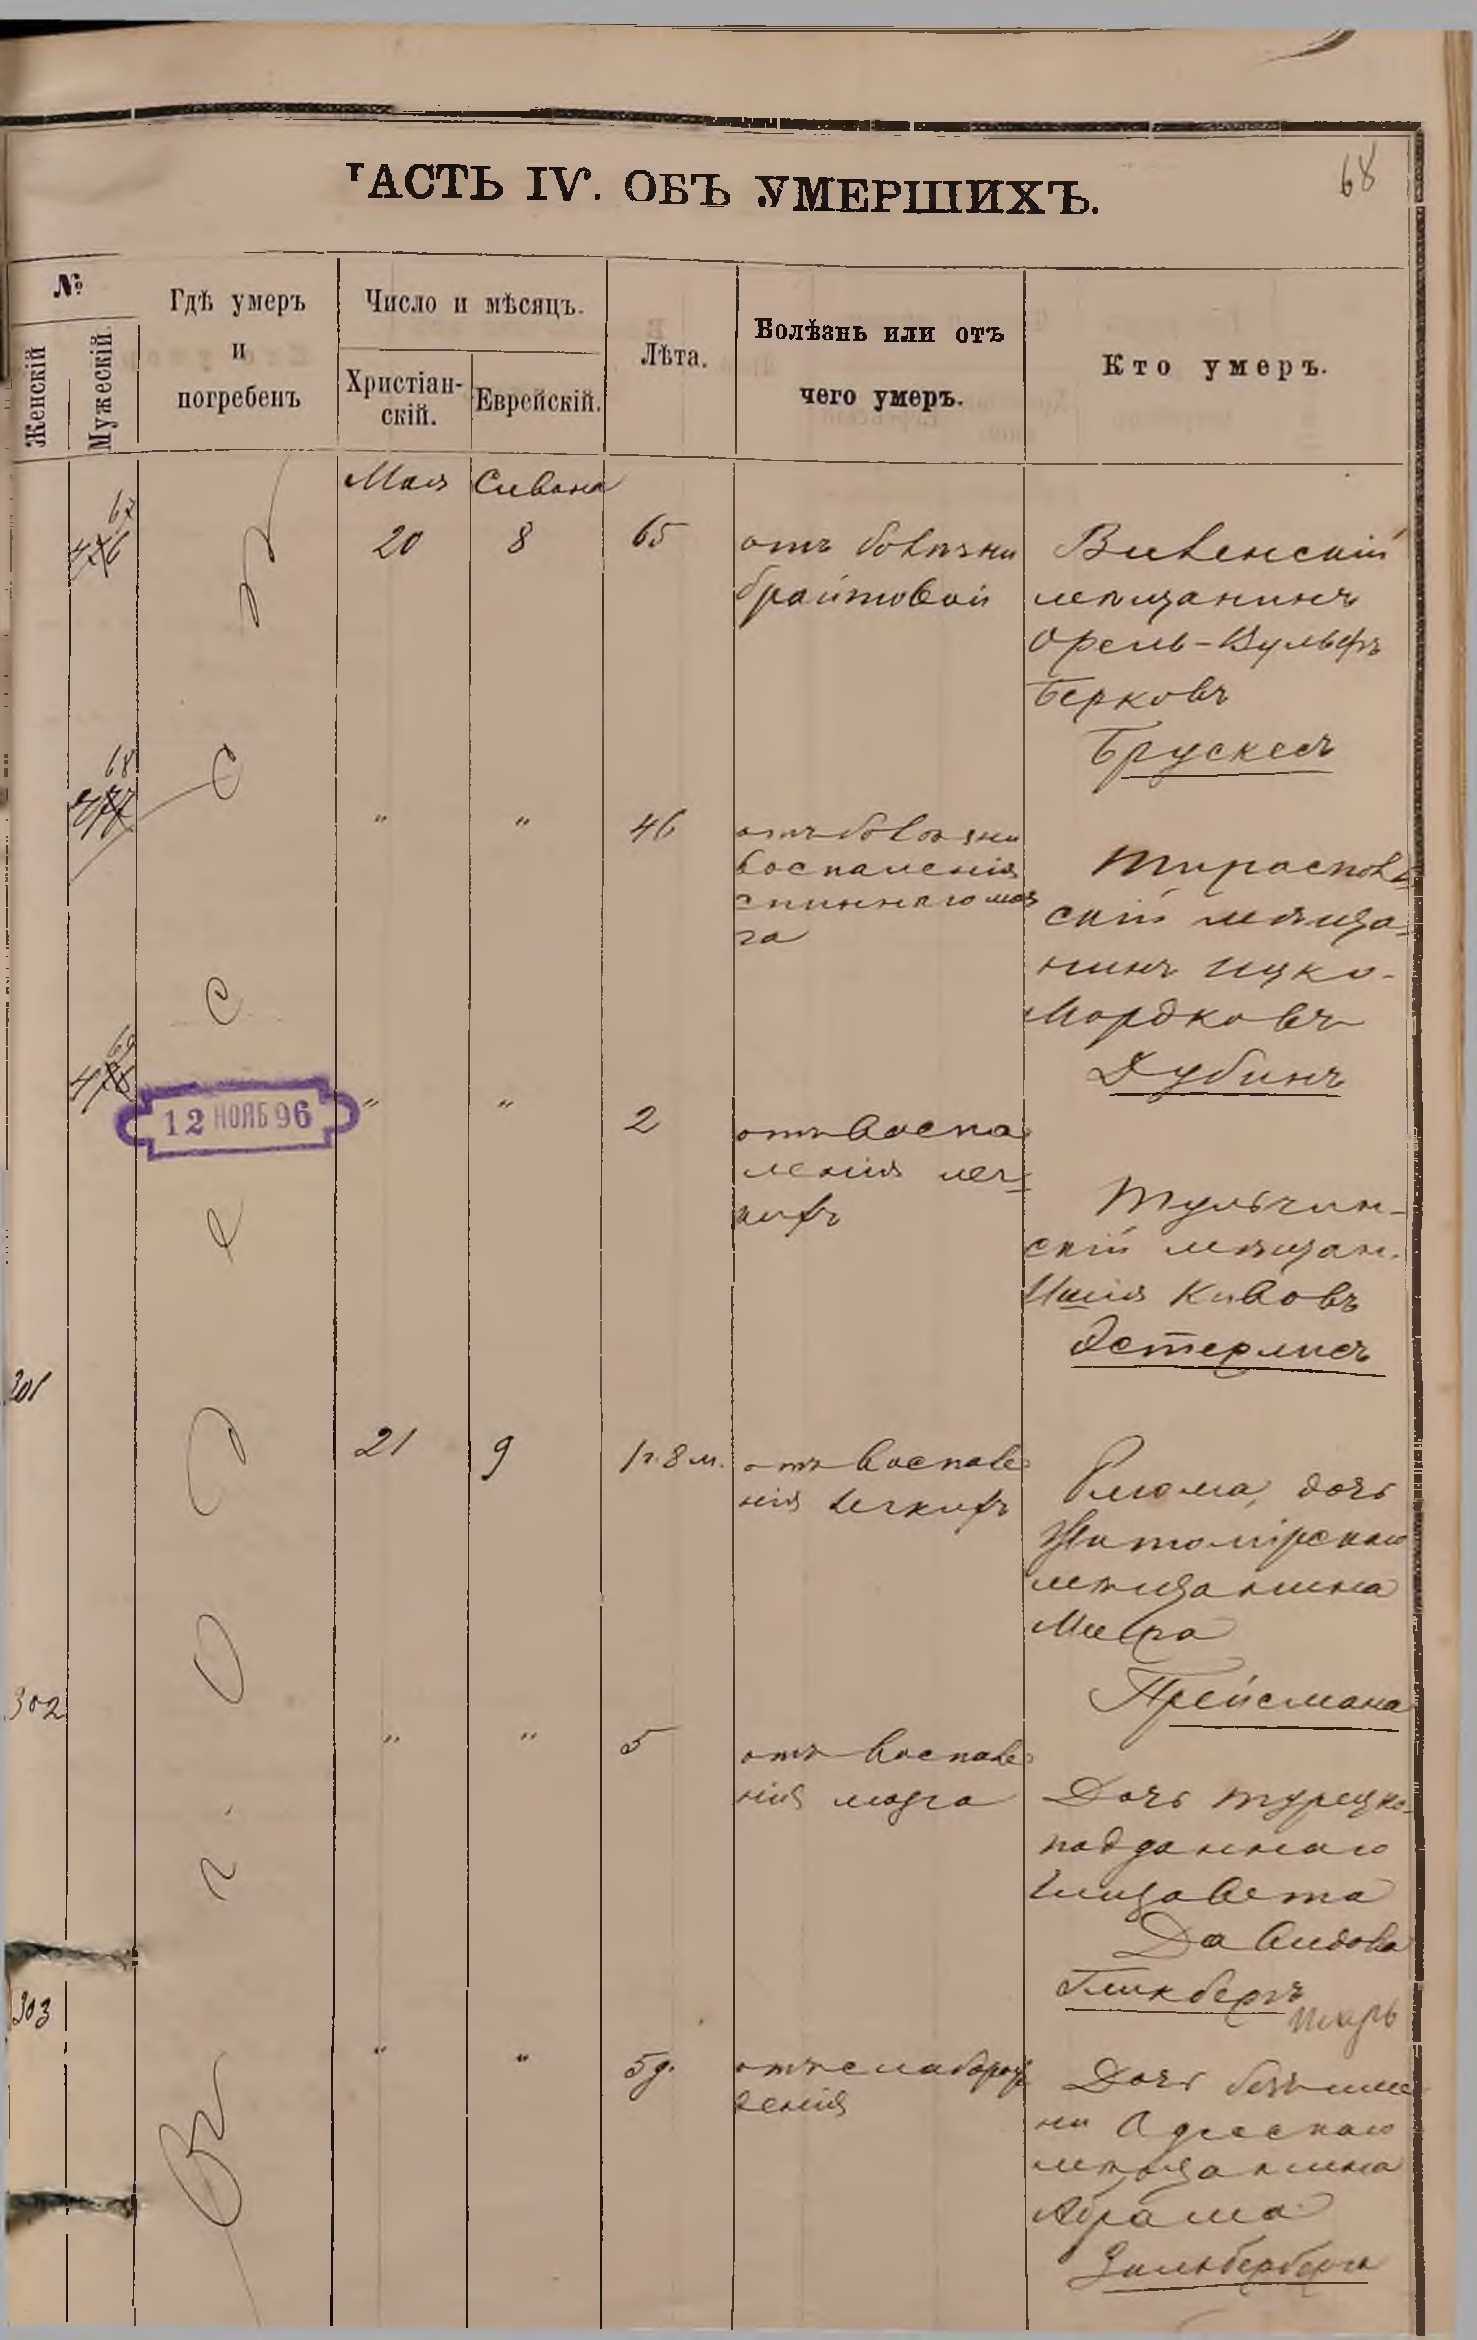 68
ЧАСТЬ IV. ОБЪ УМЕРШИХЪ.
№
Женскій
Мужескій
Гдѣ умеръ
и
погребенъ
Число и мѣсяцъ.
Христіан-
скій.
Еврейскій.
Лѣта.
Болѣзнь или отъ
чего умеръ.
Кто умеръ.
Въ г. Одессѣ
Мая
Сивана
67
476
20
8
65
отъ болѣзни
брайтовой
Виленскій
мѣщанинъ
Орель-Вульфъ
Берковъ
Брускесъ
68
477
"
"
46
отъ болѣзни
воспаленія
спиннаго моз
га
Тирасполь
скій мѣща-
нинъ Ицко-
Мордковъ
Дубинъ
69
478
12 НОЯБ 96
"
"
2
отъ воспа
ленія лег-
кихъ
Тульчин-
скій мѣщан.
Кивовъ
Эстерлисъ
301
21
9
1 г. 8 м.
отъ воспале
нія легкихъ
Блюма, дочь
Житомірскаго
мѣщанина
Меера
Прейсмана
302
"
"
5
отъ воспале
нія мозга
Дочь турецко-
подданнаго
Елизавета
Давидова
Гликбергъ
303
"
"
5 д.
отъ слаборож
денія
Дочь безъ име
ни Одесскаго
мѣщанина
Абрама
Зильберберга